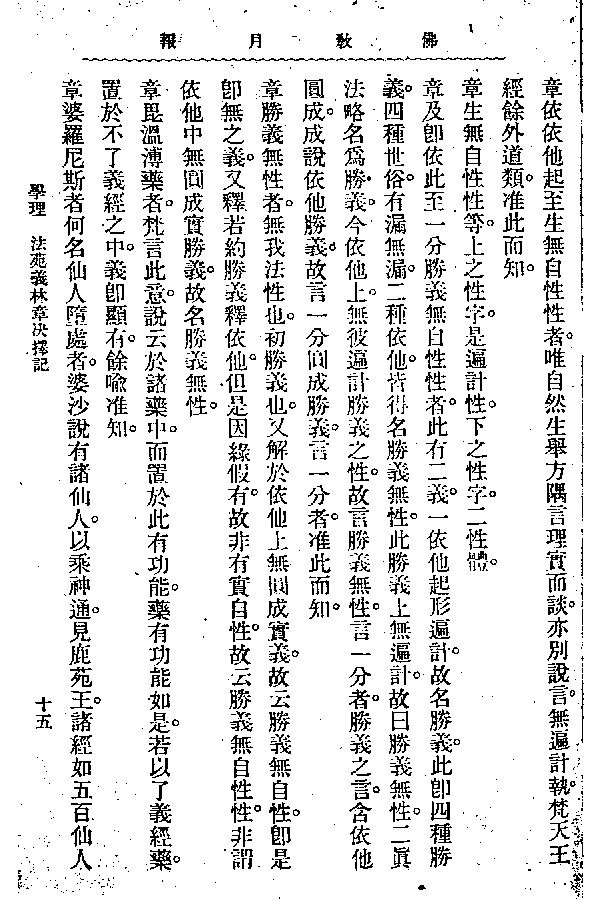 報月教佛
章依依他起至生無自性性者。唯自然生舉方隅言理實而談。亦別說言。無遍計執。梵天王
經餘外道類。准此而知。
章生無自性性等。上之性字。是遍計性。下之性字。二性體。
章及卽依此至一分勝義無自性性者。此有二義。一依他起形遍計。故名勝義。此卽四種勝
義。四種世俗。有漏無漏。二種依他。皆得名勝義無性。此勝義上無遍計。故曰勝義無性。二眞
法略名爲勝義。今依他上。無彼遍計勝義之性。故言勝義無性。言一分者。勝義之言。含依他
圓成。成說依他勝義。故言一分圓成勝義。言一分者。准此而知。
章勝義無性者。無我法性也。初勝義也。又解於依他上無圓成實義。故云勝義無自性。卽是
卽無之義。又釋若約勝義釋依他。但是因緣假有。故非有實自性。故云勝義無自性性。非謂
依他中無圓成實勝義。故名勝義無性。
章毘溫漙藥者。梵言此意說云於諸藥中。而置於此有功能。藥有功能如是。若以了義經藥。
置於不了義經之中。義卽顯有。餘喩准知。
章婆羅尼斯者何名仙人墮處者。婆沙說有諸仙人。以乘神通見鹿苑王。諸經如五百仙人
學理　法苑義林章決擇記
十五